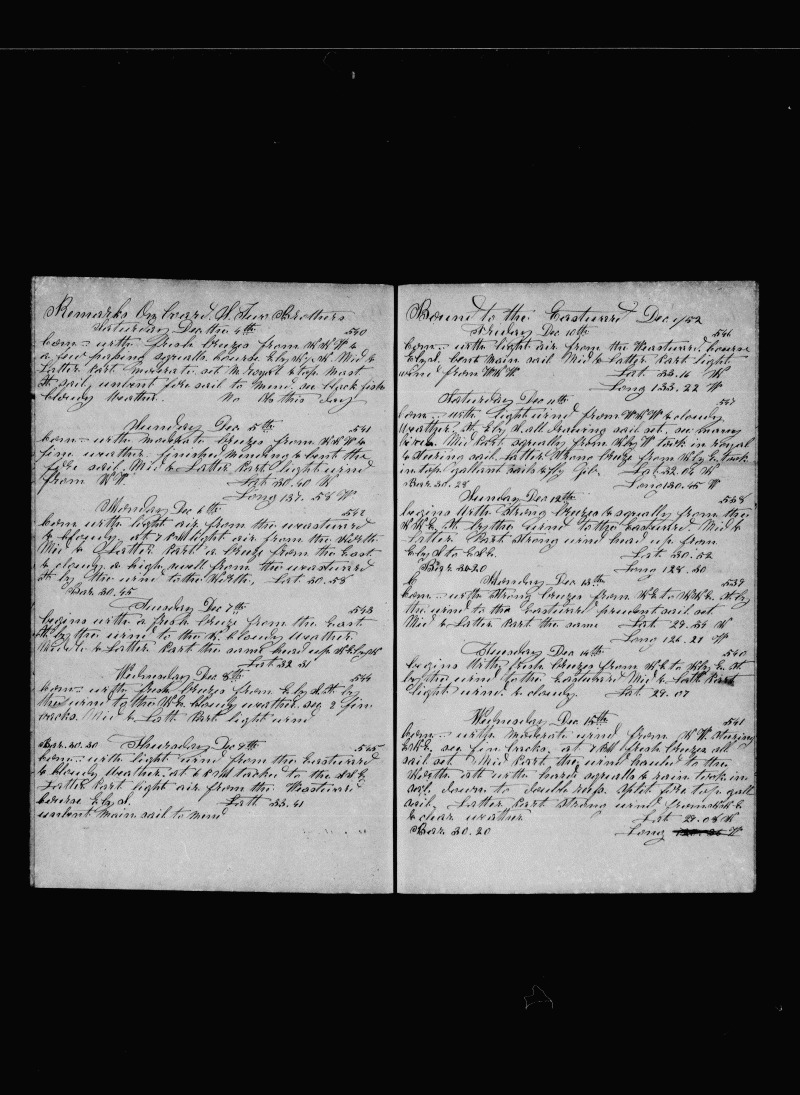 Remarks Onboard S. Two Brothers
Saturday Dec the 4th 540
Com— with fresh breezes from N.N.W &
a few passing squalls course E by N, St. Mid &
Latter Part moderate set M royal & top Mast
St sail, unbent fore sail to mend see black fish
Cloudy Weather. No Ob this day
Sunday Dec 5th 541
Com— with moderate breezes from N.N.W &
fine weather finished mending & bent the
fore sail. Mid & Latter Part light wind
from N.W. Lat 30.40 N
Long 137.58 W
Monday Dec 6th 542
Com with light air from the westward
& cloudy, at 7 PM light air from the North
Mid & Latter Part a breeze from the East
& cloudy a high swell from the westward
St by the wind to the North, Lat 30.58
Bar 30.45
Tuesday Dec 7th 543
begins with a fresh breeze from the East
St by the wind to the N. cloudy weather.
Middle & Latter Part the same head up N by N
Latt 32 31
Wednesday Dec 8th 544
Com— with fresh breezes from E by S St by
the wind to the N.E. cloudy weather, see 2 fin
backs. Mid & Latt Part light wind
Bar. 30.30 Thursday Dec 9th 545
Com— with light wind from the Eastward
& cloudy Weather. at 6 PM tacked to the S.S.E
Latter Part light air from the Westward
course E by S. Latt 33.41
unbent Main sail to mend
Bound to the Eastward Dec 1/52
Friday Dec 10th 546
Com— with light air from the Westward course
E by S. bent Main sail Mid & Latter Part light
wind from W.N.W. Lat 33.16 N
Long 133.22 W
Saturday Dec 11th 547
Com— with light wind from W.N.W & cloudy
Weather, St, E by S. all drawing sail set, see many
birds. Mid Part squally from N by W took in royal
& steering sail. Latter Strong breeze from N by E. took
in top gallant sails & fly Gib. Lat 32.04 N
Bar 30.28 Long 130.45 W
Sunday Dec 12th 538
begins With strong breezes & squally from the
N.N.E. St by the wind to the Eastward. Mid &
Latter Part strong wind head up from
E by S to E.S.E. Lat 30.52
Bar 30.20 Long 128.30
Monday Dec 13th 539
Com— with strong breezes from N.E to N.N.E. St by
the wind to the Eastward prudent sail set
Mid & Latter Part the same Lat 29.54 N
Long 126.21 W
Tuesday Dec 14th 540
begins With fresh breezes from N.E to N by E. St
by the wind to the Eastward Mid & Latt Part
light wind & cloudy. Lat. 29.07
Wednesday Dec 15th 541
Com— with moderate wind from N.W. Steering
E.S.E, see fin backs, at 7 PM fresh breezes all
sail set Mid Part the wind hauled to the
North ath with hard squalls & rain took in
sail down to double reefs. split fore top gall
sail, Latter Part strong wind from N.N.E
& clear weather Lat 29.08 N
Bar 30.20 Long W